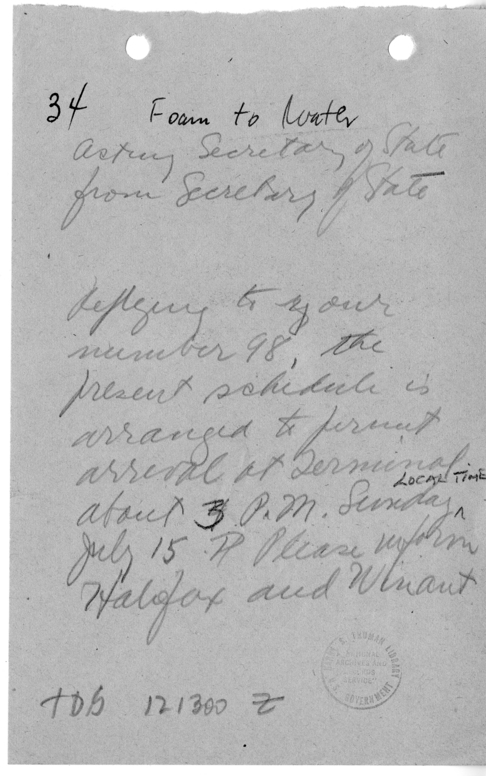 34 Foam to Water
Acting Secretary of State
from Secretary of State
Replying to your
number 98, the
present schedule is
arranged to permit
arrival at Terminal
LOCAL TIME
about 3 P.M. Sunday ^
July 15 // Please inform
Halifax and Winant
TRUMAN LIBRARY
NATIONAL
ARCHIVES AND
GOVERNMENT
121300 Z